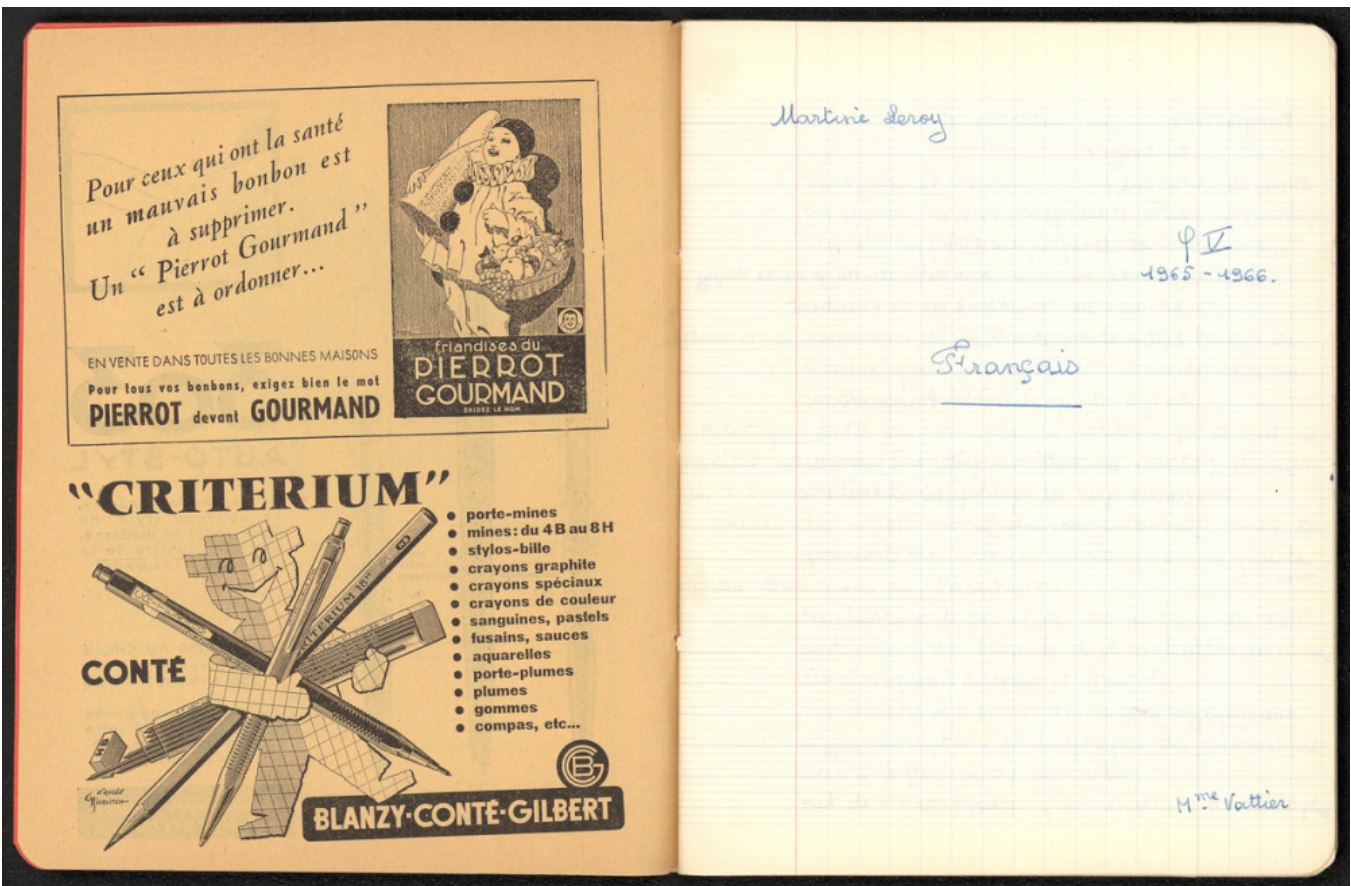 Pour ceux qui ont la santé
un mauvais bonbon est
à supprimer.
Un “ Pierrot Gourmand ”
est à ordonner...
EN VENTE DANS TOUTES LES BONNES MAISONS
Pour tous vos bonbons, exigez bien le mot
PIERROT devant GOURMAND
friandises du
PIERROT
GOURMAND
EXIGEZ LE NOM
“CRITERIUM”
porte-mines
mines: du 4B au 8H
stylos-bille
crayons graphite
crayons spéciaux
crayons de couleur
sanguines, pastels
fusains, sauces
aquarelles
porte-plumes
plumes
gommes
compas, etc...
CRITERIUM
CONTÉ
d'après
BLANZY-CONTÉ-GILBERT
Martine Leroy
φ IV
1965-1966.
Français
Mme Vattier